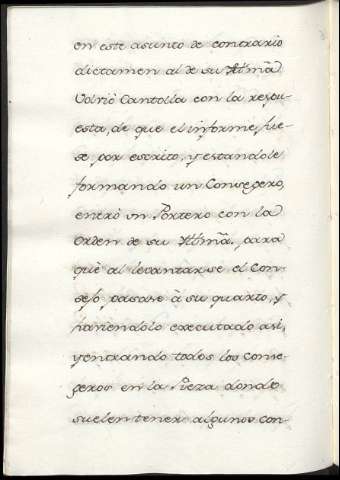 en este asunto de contrario
dictamen al de su Illmã.
Volviò Cantolla con la respu-
esta, de que el informe fue-
se por escrito, y estandole
formando un Consegero,
entrò un Portero con la
orden de su Illmã. para
què al levantarse el Con-
sejo pasase à su quarto, y
haviendolo executado asi,
y entrando todos los Conse-
geros en la Pieza donde
suelen tener algunos con-